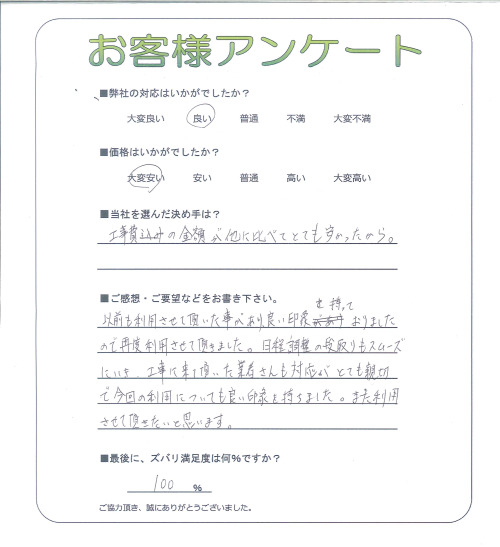 お客様アンケート
■弊社の対応はいかがでしたか？
大変良い 良い 普通 不満 大変不満
■価格はいかがでしたか？
大変安い 安い 普通 高い 大変高い
■当社を選んだ決め手は？
工事費込みの金額が他に比べてとても安かったから。
■ご感想・ご要望などをお書き下さい。
を持って
以前も利用させて頂いた事があり良い印象おりました
ので再度利用させて頂きました。日程調整の段取りもスムーズ
にいき、工事に来て頂いた業者さんも対応がとても親切
で今回の利用についても良い印象を持ちました。また利用
させて頂きたいと思います。
■最後に、ズバリ満足度は何％ですか？
100 ％
ご協力頂き、誠にありがとうございました。